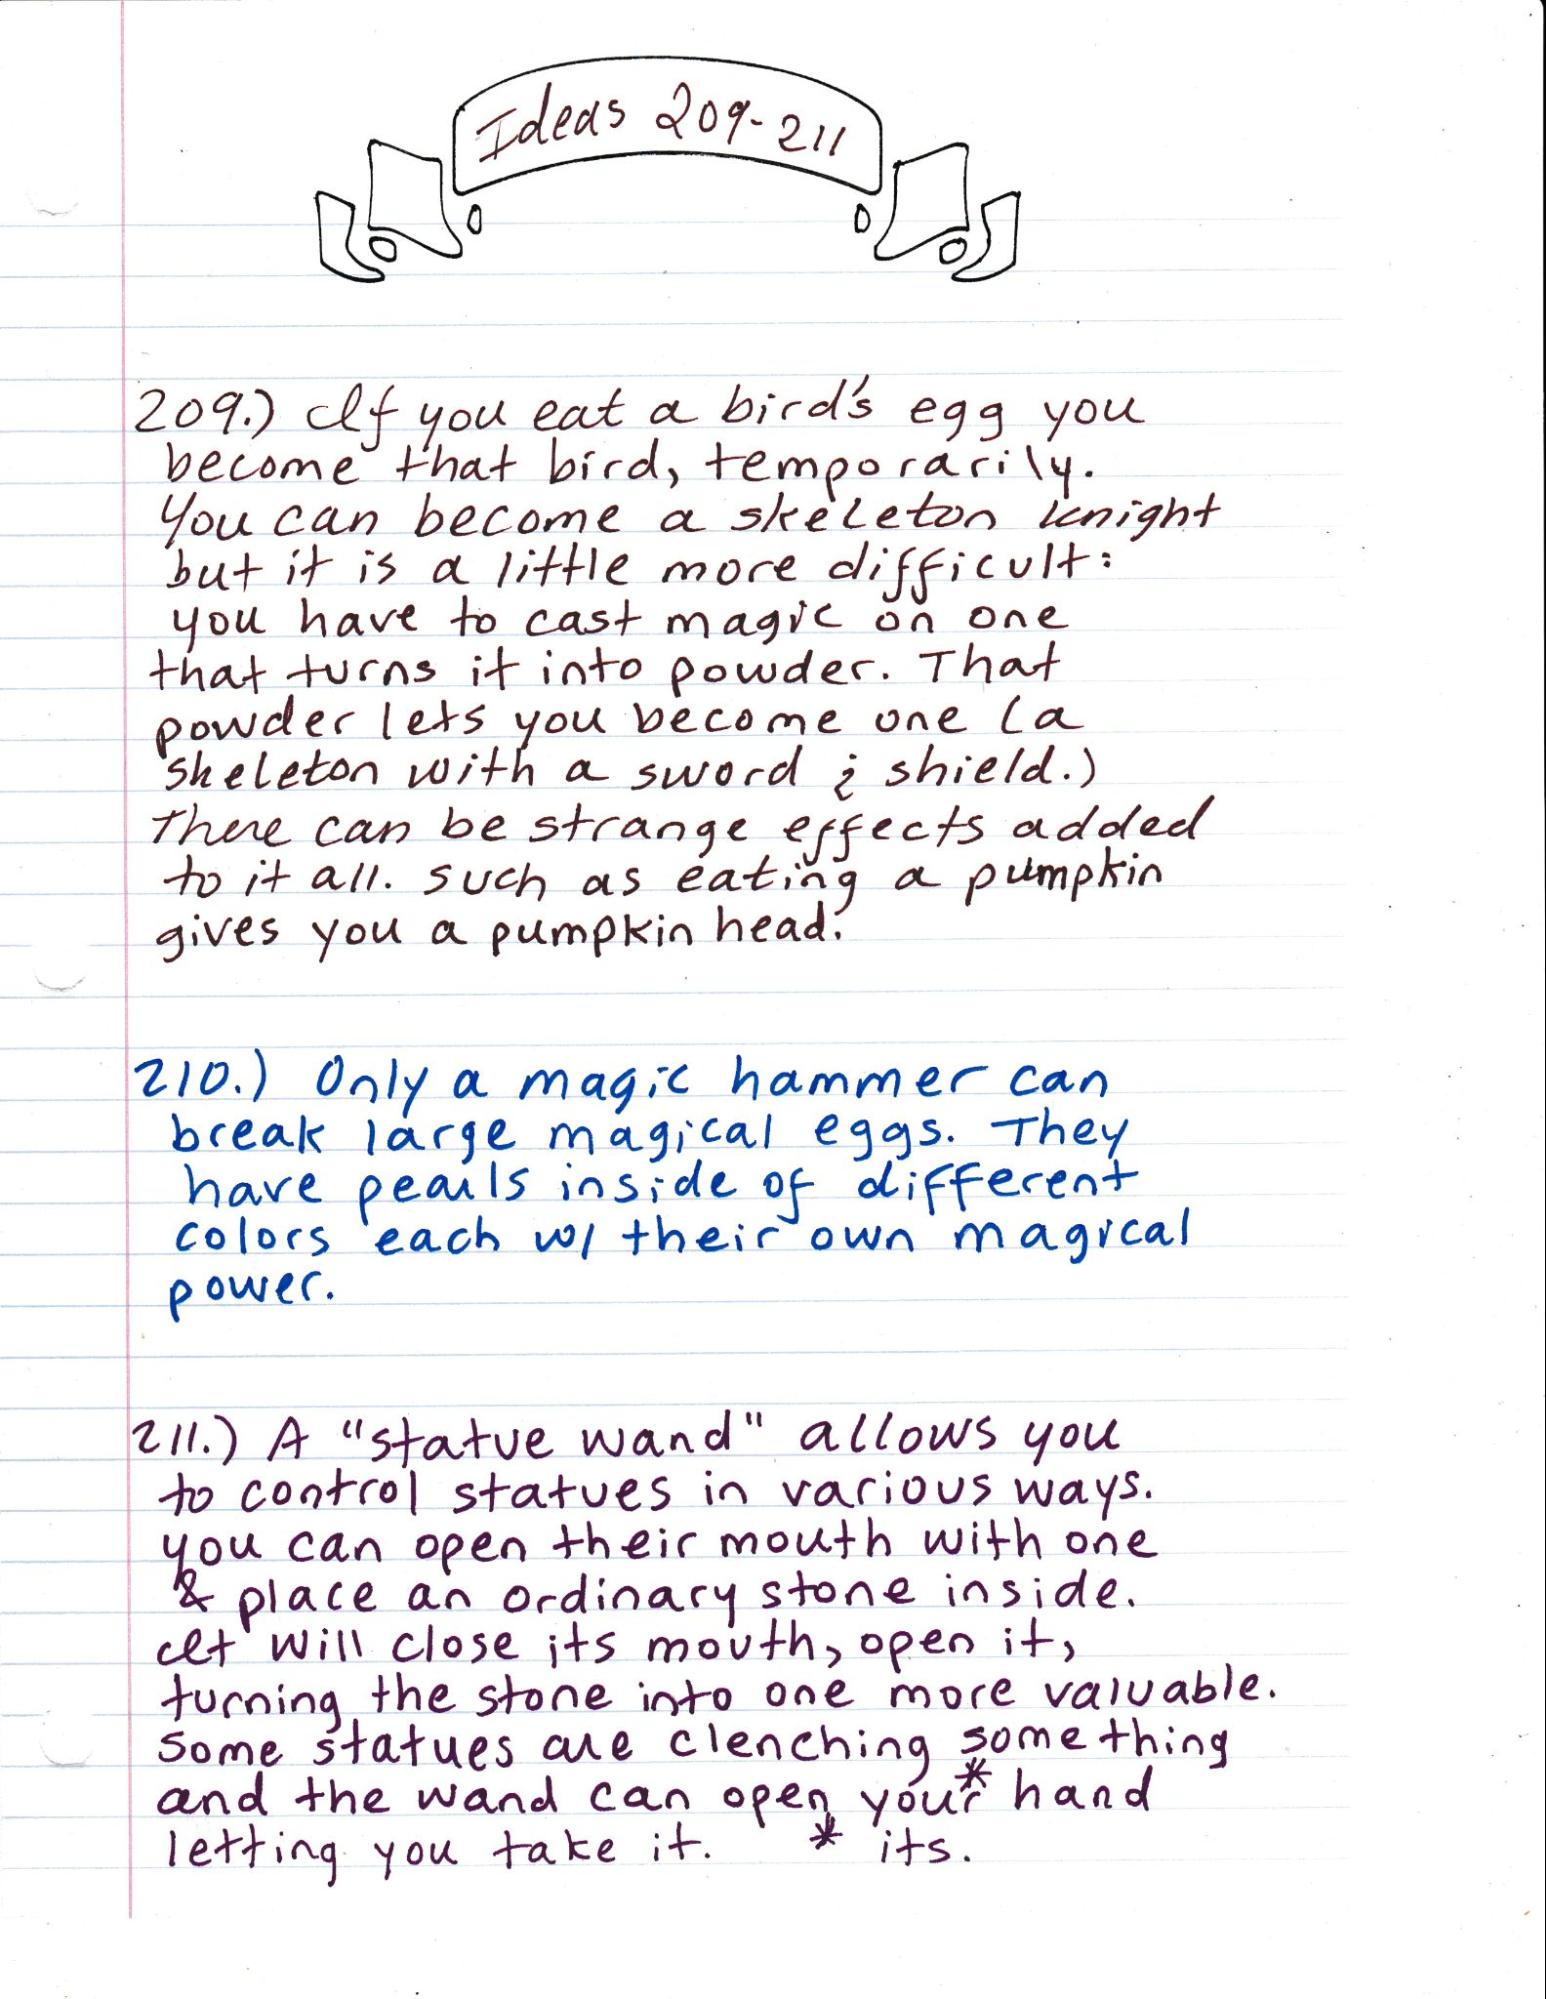 Ideas 209-211
209.) If you eat a bird's egg you
become that bird, temporarily.
You can become a skeleton knight
but it is a little more difficult:
you have to cast magic on one
that turns it into powder. That
powder lets you become one (a
skeleton with a sword & shield.)
There can be strange effects added
to it all. such as eating a pumpkin
gives you a pumpkin head.
210.) Only a magic hammer can
break large magical eggs. They
have pearls inside of different
colors each w/ their own magical
power.
211.) A "statue wand" allows you
to control statues in various ways.
you can open their mouth with one
& place an ordinary stone inside.
It will close its mouth, open it,
turning the stone into one more valuable.
Some statues are clenching something
and the wand can open your* hand
letting you take it. * its.